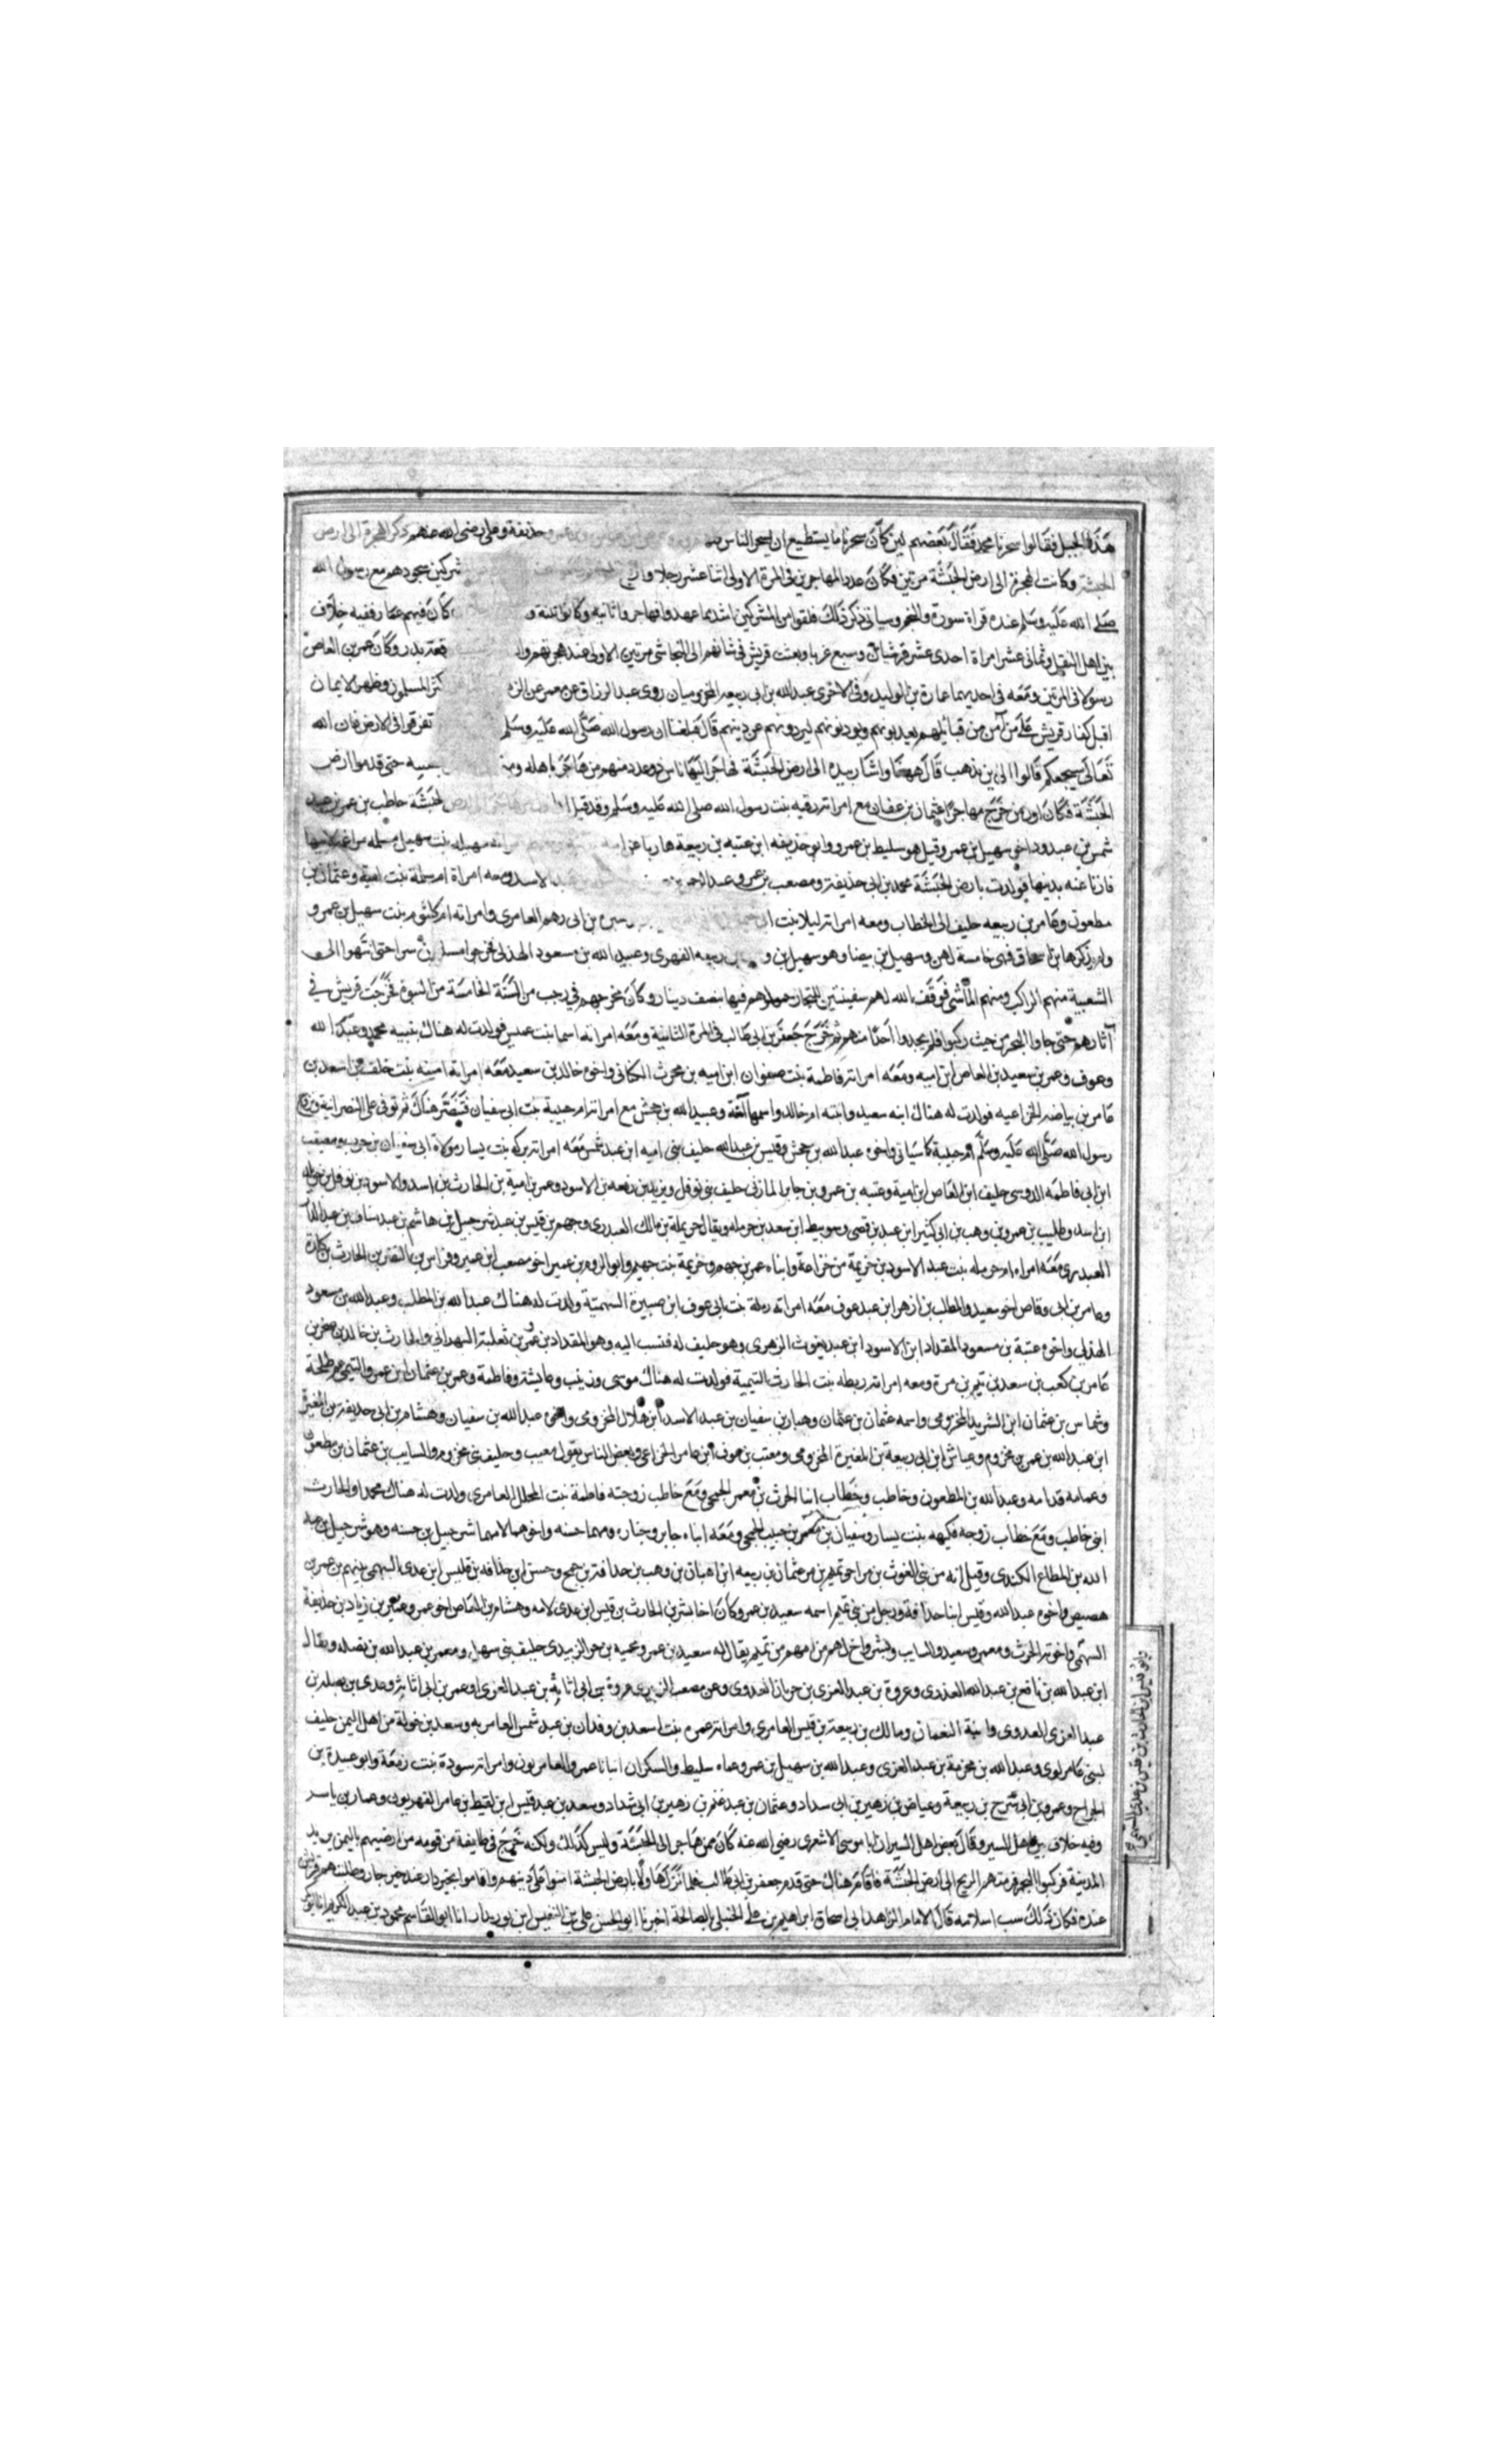 هذا الجبل فقالوا سحرنا محمد فقال بعضهم لين كان سحرنا ما يستطيع ان يسحر الناس حذيفة وعلي رضى الله عنهم ذكر الهجرة الى ارض
الحبشة وكانت الهجرة الى ارض الحبشة مرتين فكان عدد المهاجرين فى المرة الاولى اثنا عشر رجلا شركين سجودهم مع رسول الله
صلى الله عليه وسلم عند قراة سورة والنجم وسياتى ذكر ذلك فلقوا من المشركين اشد ما عهدوا فهاجروا ثانيه وكانوا كان فيهم عمار ففيه خلاف
بين اهل النقل وثمانى عشر امراة احدى عشر قرشيات وسبع غربا وبعثت قريش فى شانهم الى النجاشى مرتين الاولى عند هجرتهم بدر وكان عمرو بن العاص
رسولا فى المرتين ومعه فى احديهما عمارة بن الوليد وفى الاخرى عبدالله بن ابى ربيعه المخزوميان روى عبد الرزاق عن معمر عن كثر المسلمون وظهر الايمان
اقبل كفار قريش على من آمن من قبائلهم يعذبونهم ويوذونهم ليردونهم عن دينهم قال فبلغنا ان رسول الله صلى الله عليه وسلم تفرقوا فى الارض فان الله
تعالى سيجمعكم قالوا الى اين نذهب قال ههنا واشار بيده الى ارض الحبشة فهاجر اليها ناس ذو عدد منهم من هاجر باهله حتى قدموا ارض
الحبشة فكان اول من خرج مهاجرا عثمان بن عفان مع امراته رقيه بنت رسول الله صلى الله عليه وسلم وقد قيل الحبشة حاطب بن عمر بن عبد
شمس بن عبدود اخى سهيل بن عمرو وقيل هو سليط بن عمرو وابو حذيفه ابن عتبه بن ربيعة هاربا بنت سهيل مسلمه مراغمة لابيها
فارة عنه بدينها فولدت بارض الحبشة محمد بن ابى حذيفة ومصعب بن عمير وعبد الاسد ومعه امراة ام سلمة بنت امية وعثمان بن
مظعون وعامر بن ربيعه حليف الى الخطاب ومعه امراته ليلا بنت سبره بن ابى رهم العامرى وامراته ام كلثوم بنت سهيل بن عمرو
ولم يذكرها ابن اسحاق فهى خامسة لهن وسهيل بن بيضا وهو سهيل بن ربيعه الفهرى وعبد الله بن مسعود الهذلى فخرجوا متسللين سرا حتى انتهوا الى
الشعيبة منهم الراكب ومنهم الماشى فوفق الله لهم سفينتين للتجار حملوهم فيها بنصف دينار وكان مخرجهم فى رجب من السنة الخامسة من النبوة فخرجت قريش فى
آثارهم حتى جاوا البحر من حيث ركبوا فلم يجدوا احدا منهم ثم خرج جعفر بن ابى طالب فى المرة الثانية ومعه امراته اسما بنت عميس فولدت له هناك بنيه محمد وعبد الله
وعوف وعمر بن سعيد بن العاص ابن اميه ومعه امراته فاطمة بنت صفوان ابن اميه بن محرث الكنانى واخوه خالد بن سعيد معه امراته امينه بنت خلف بن اسعد بن
عامر بن بياضه الخزاعيه فولدت له هناك ابنه سعيد وابنته ام خالد واسمها آمنة وعبيد الله بن جحش مع امراته ام حبيبة بنت ابى سفيان فتنصر هناك ثم توفى على النصرانية
رسول الله صلى الله عليه وسلم ام حبيبة كما سياتى واخوه عبدالله بن جحش وقيس بن عبدالله حليف بنى اميه ابن عبد شمس معه امراته بركه بنت يسار مولاة ابى سفيان بن حرب ومعيقيب
ابن ابى فاطمه الدوسى حليف ابن العاص ابن امية وعتبه بن عمرو بن جابر المازنى حليف بنى نوفل ويزيد بن زمعه بن الاسود وعمر بن امية بن الحارث بن اسد والاسود بن نوفل بن خويلد
ابن اسد وطليب بن عمرو بن وهب بن ابى كثير ابن عبد بن قصى وسويبط ابن سعد بن حرمله ويقال حريملة بن مالك العبدرى وجهم بن قيس بن عبد شرحبيل بن هاشم بن عبد مناف بن عبد الدار
العبدرى معه امراه ام حرمله بنت عبد الاسود بن خزيمة من خزاعة وابناه عمر بن جهم وخزيمة بنت جهم وابو الروم بن عمير اخو مصعب ابن عمير وفراس بن النضر بن الحارث بن كلدة
وعامر بن ابى وقاص اخو سعيد والمطلب بن ازهر ابن عبد عوف معه امراته رملة بنت ابى عوف ابن صبيرة السهمية ولدت له هناك عبدالله بن المطلب وعبدالله بن مسعود
الهذلى واخوه عتبة بن مسعود المقداد ابن الاسود ابن عبد يغوث الزهرى وهو حليف له فنسب اليه وهو المقداد بن عمرو بن ثعلبة البهرانى والحارث بن خالد بن صخر بن
عامر بن كعب بن سعد بن تيم بن مرة ومعه امراته ريطه بنت الحارث التيمية فولدت له هناك موسى وزينب وعايشة وفاطمة وعمر بن عثمان ابن عمرو التيمى عم طلحة
وشماس بن عثمان ابن الشريد المخزومى واسمه عثمان بن عثمان وهبار بن سفيان بن عبد الاسد ابن هلال المخزومى واخوه عبدالله بن سفيان وهشام بن ابى حذيفة بن المغيرة
ابن عبدالله بن عمر بن مخزوم وعياش ابن ابى ربيعة بن المغيرة المخزومى ومعتب بن عوف ابن عامر الخزاعى وبعض الناس يقول معيب وحليف بنى مخزوم والسايب بن عثمان بن مظعون
وعمامه قدامه وعبدالله بن المظعون وخاطب وخطاب ابنا الحرث بن معمر الجمحى ومع خاطب زوجته فاطمة بنت المحلل العامرى ولدت له هناك محمدا والحارث
ابنى خاطب ومع خطاب زوجه فكيهه بنت يسار وسفيان بن معمر بن حبيب الجمحى ومعه ابناه جابر وجناره ومهما حسنه واخوهما لامهما شرحبيل بن حسنه وهو شرحبيل بن عبد
الله بن المطاع الكندى وقيل انه من بنى الغوث بن مر اخو تميم بن مر عثمان بن ربيعه ابن اهبان بن وهب بن حذافة بن جمح وحسن ابن حذافه بن قيس ابن عدى السهمى
هصيص واخوه عبدالله وقيس ابنا حذافة ورجل من بنى تميم اسمه سعيد بن عمرو كان اخا بشر بن الحارث بن قيس ابن عدى لامه وهشام بن العاص اخو عمرو وعمير بن زياد بن حذيفة
السهمى واخوته الحرث ومعمر وسعيد والسايب وبشر واخ لهم من امهم من تميم يقال له سعيد بن عمرو ومحميه بن جز الزبيدى حليف بنى سهم ومعمر بن عبدالله بن نضله ويقال
ابن عبدالله بن نافع بن عبدالله العذوى وعروة بن عبد العزى بن حرثان العدوى وعن مصعب الزبيرى عروة بن ابى اثاثة بن عبد العزى او عمر بن ابى اثاثة وعدى بن نضله بن
عبد العزى العدوى وابنه النعمان ومالك بن ربيعة بن قيس العامرى وامراته عمره بنت اسعد بن وقدان بن عبد شمس العامريه وسعد بن خولة من اهل اليمن حليف
لبنى عامر لوى وعبدالله بن مخرمة بن عبد العزى وعبدالله بن سهيل بن عمرو عماه سليط والسكران ابنا عمرو العامريون وامراته سودة بنت زمعة وابو عبيدة بن
الجراح وعمرو بن ابى سرح بن ربيعة وعياض بن زهير بن ابى سداد وعثمان بن عبد غنم بن زهير بن ابى شداد وسعد بن عبد قيس ابن لقيط بن عامر الفهريون وعمار بن ياسر
وفيه خلاف بين اهل السير وقال بعض اهل السير ان ابا موسى الاشعرى رضى الله عنه كان ممن هاجر الى الحبشة وليس كذلك ولكنه خرج فى طايفة من قومه من ارضهم باليمن يريد
المدينة فركبوا البحر فرمتهم الريح الى ارض الحبشة فاقام هناك حتى قدم جعفر بن ابى طالب فلما نزلها ولا بارض الحبشة امنوا على دينهم واقاموا بخير دار عند خير جار وطلبتهم قريش
عنده فكان ذلك سبب اسلامه قال الامام الزاهد ابى اسحاق ابراهيم بن على الحنبلى بالصالحة اخبرنا ابو الحسن على بن النفيس ابن بورنداز انا ابو القاسم محمود بن عبد الكريم
وابو قيس ابن الحارث بن قيس بن عدى السهمى